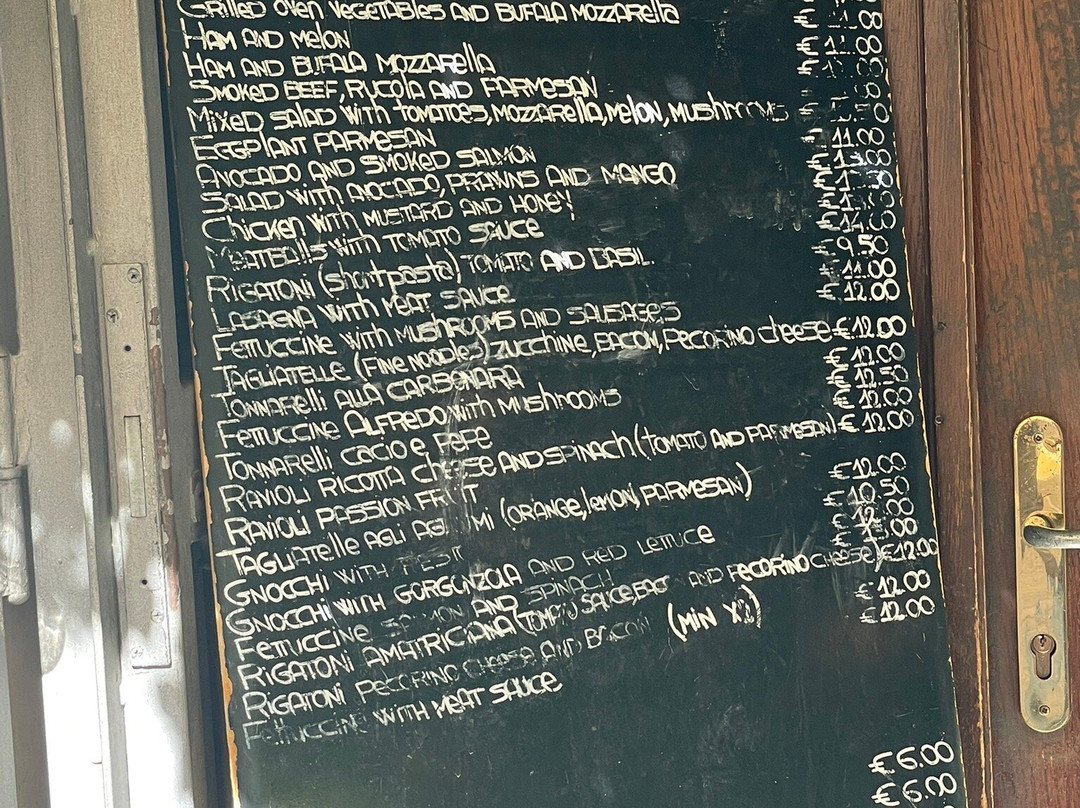 Grilled oven vegetables and bufala mozzarella
Ham and melon
Ham and bufala mozzarella
Smoked beef, rucola and parmesan
Mixed salad with tomatoes, mozzarella, melon, mushrooms
Eggplant parmesan
Avocado and smoked salmon €11.00
Salad with avocado, prawns and mango
Chicken with mustard and honey
Meatballs with tomato sauce €14.00
Rigatoni (short pasta) tomato and basil. €9.50
Lasagna with meat sauce €11.00
Fettuccine with mushrooms and sausages €12.00
Tagliatelle (fine noodles) zucchine, bacon, pecorino cheese €12.00
Tonnarelli alla carbonara €12.00
Fettuccine Alfredo with mushrooms €12.50
Tonnarelli cacio e pepe €12.00
Ravioli ricotta cheese and spinach (tomato and parmesan) €12.00
Ravioli passion fruit
Tagliatelle agli agrumi (orange, lemon, parmesan) €12.00
Gnocchi with pesto €10.50
Gnocchi with gorgonzola and red lettuce
Fettuccine salmon and spinach
Rigatoni amatriciana (tomato sauce, bacon and pecorino cheese) €12.00
Rigatoni pecorino cheese and bacon (min x2) €12.00
Fettuccine with meat sauce €12.00
€6.00
€6.00